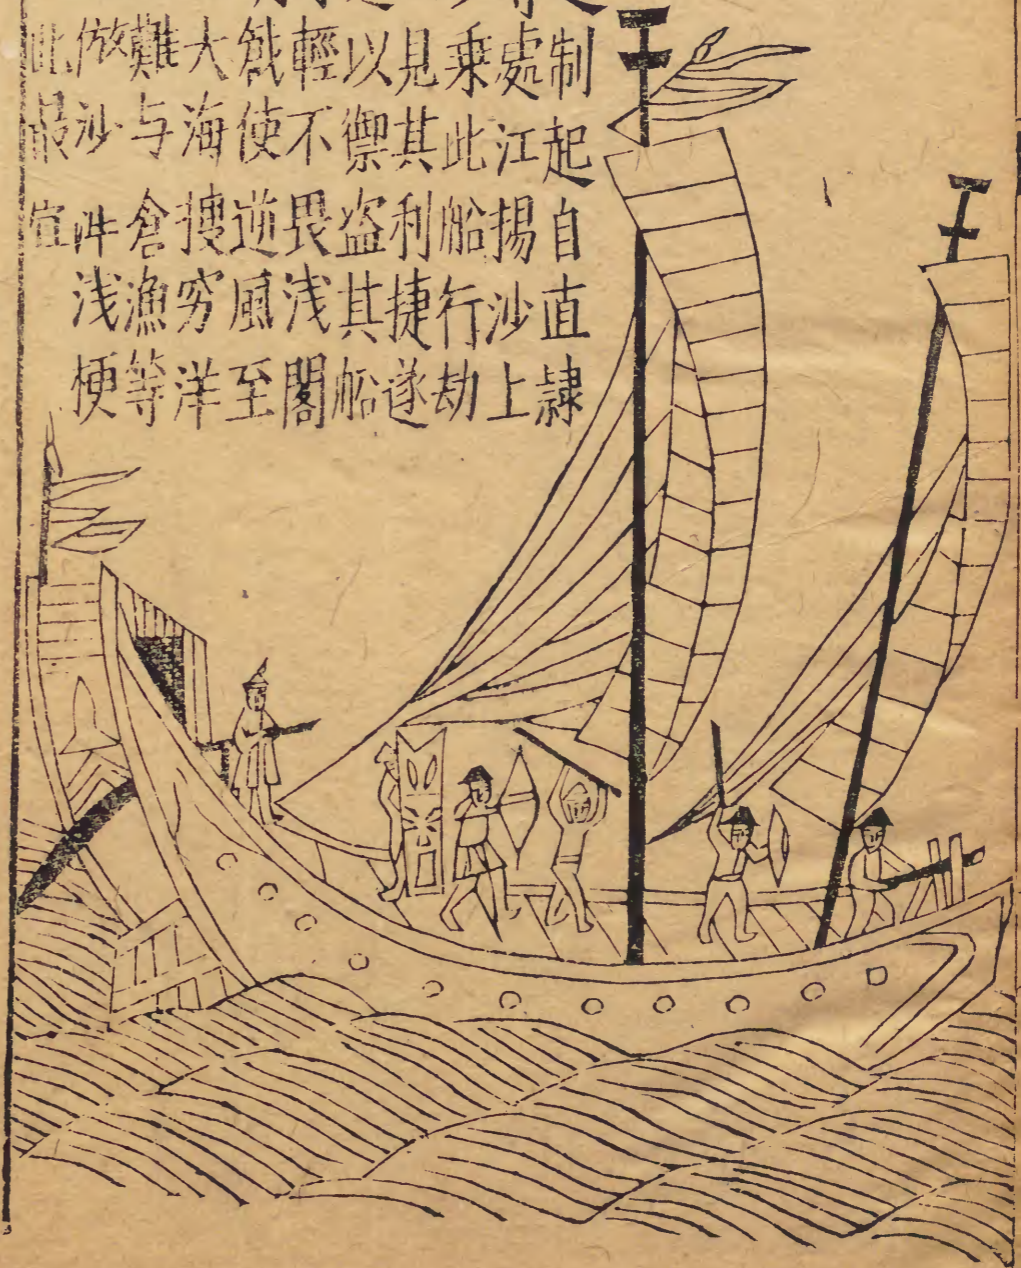 制起自直隸
處江揚沙上
乗此船行劫
見其利捷遂
以禦盗其船
輕不畏浅閣
戧使逆風至
大海搜穷洋
難与倉漁等
倣沙浅梗
此最宜